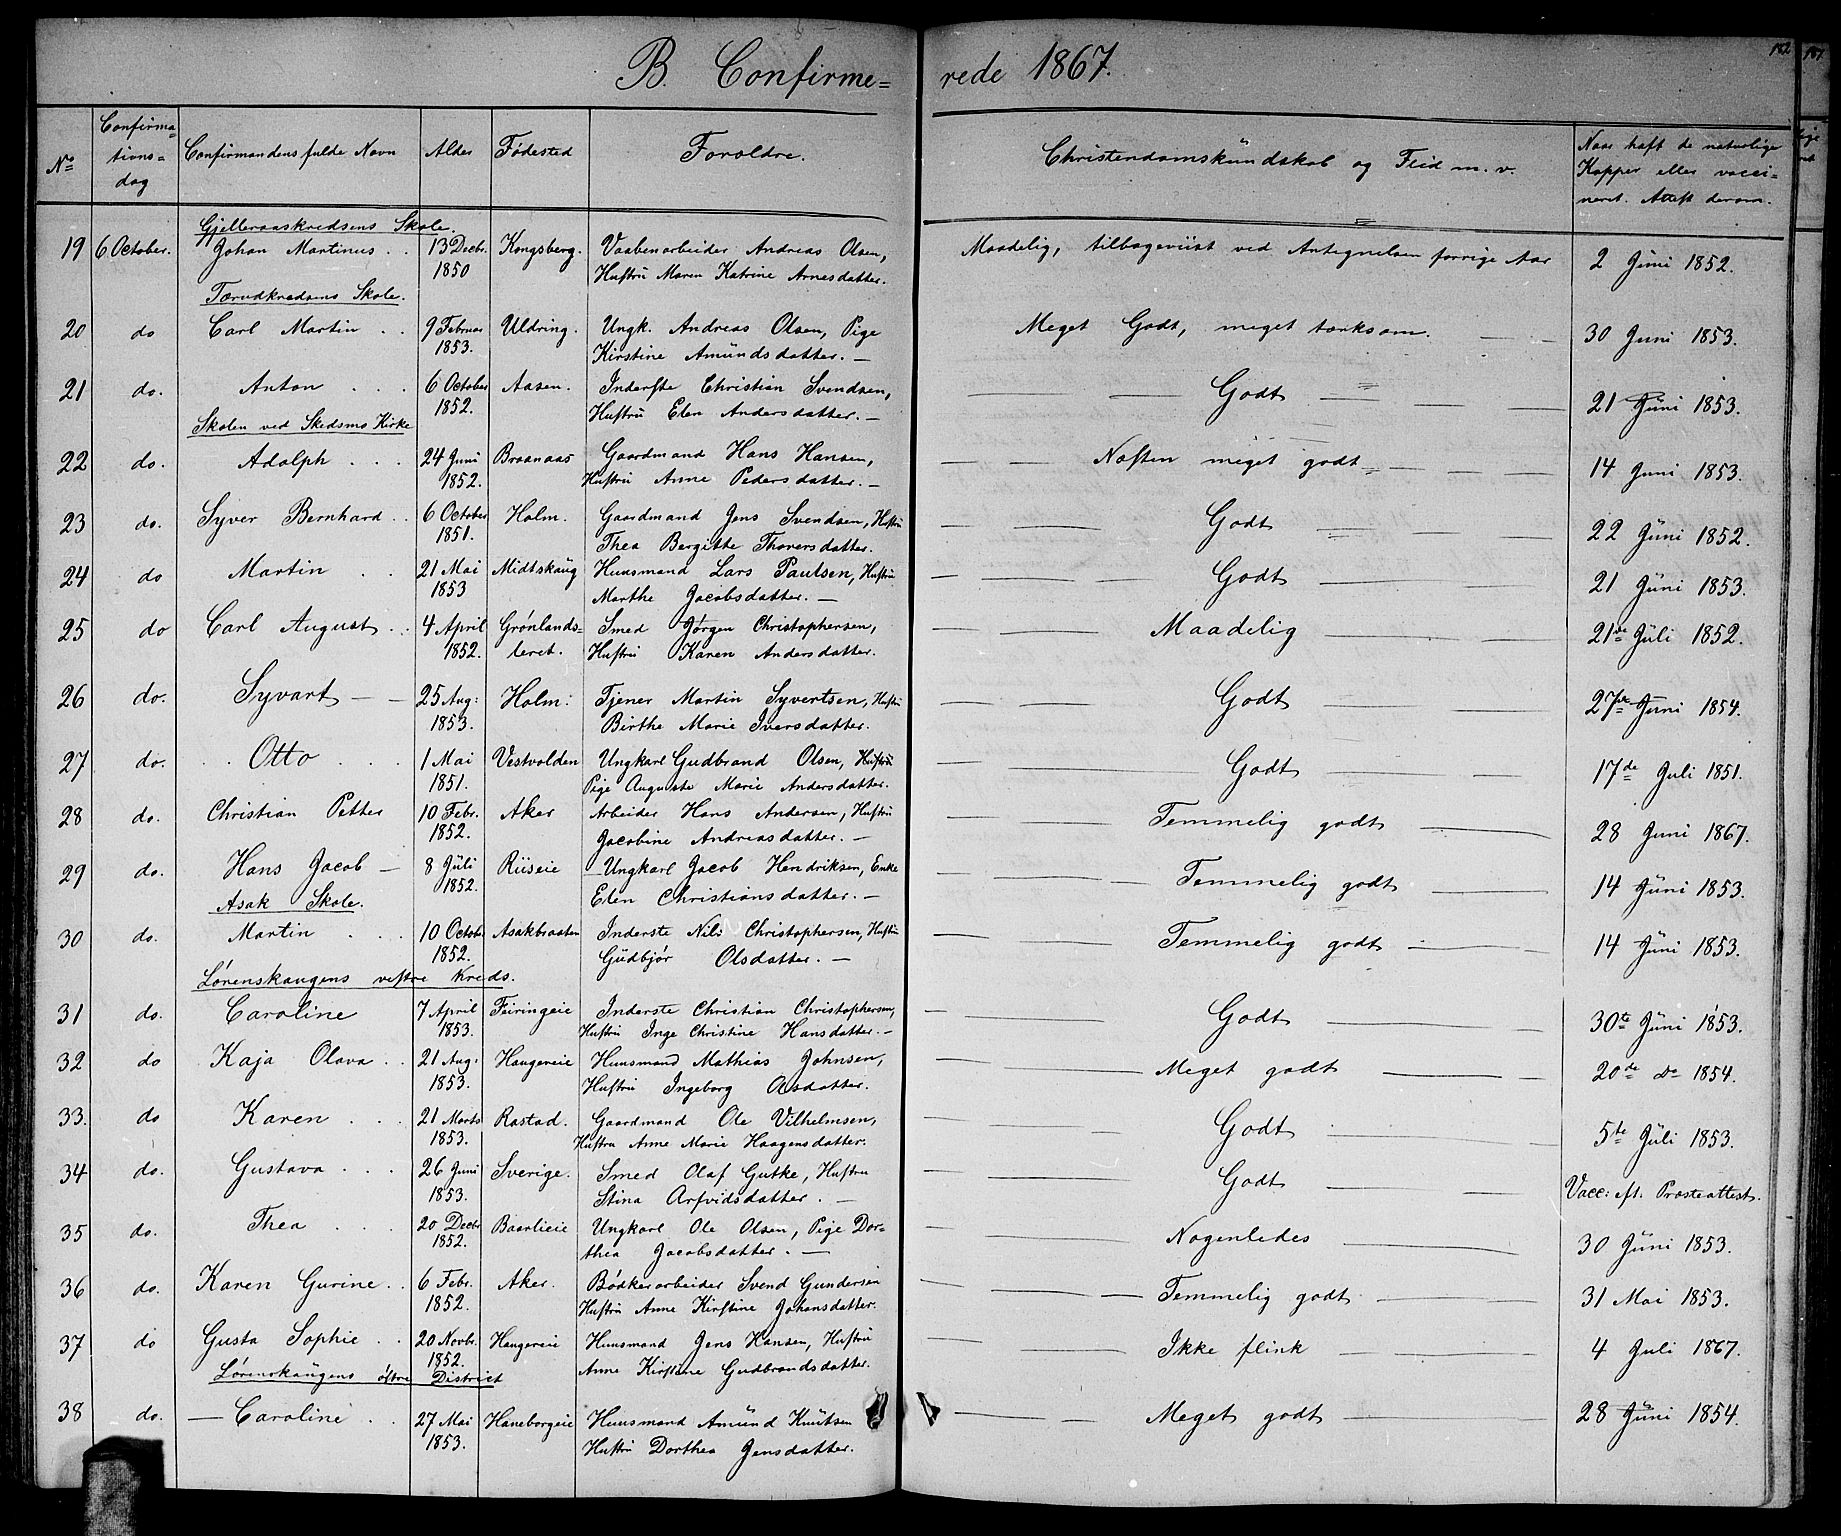 B. Confirme= rede 1867.
182
181
No
Confirma=
tions=
dag
Confirmandens fulde Navn
Alder
Fødested
Forældre.
Christendomskundskab og Flid m.v.
Naar haft de naturlige
Kopper eller vacci=
neret. Attest derom.
Gjelleraaskredsens Skole.
19 6 October. Johan Martinus 13 Decbr. Kongsberg. Vaabenarbeider Andreas Olsen, Maadelig, tilbageviist ved Antegnelsen forrige Aar 2 Juni 1852.
1850 Hustru Maren Katrine Arnesdatter.
Tærudkredsens Skole.
20 do Carl Martin 9 Februar Uldring. Ungk. Andreas Olsen, Pige Meget Godt, meget tænksom. 30 Juni 1853.
1853. Kirstine Amundsdatter.
21 do. Anton 6 October Aasen. Inderste Christian Svendsen, Godt 21 Juni 1853.
1852. Hustru Elen Andersdatter.
Skolen ved Skedsmo Kirke
22 do. Adolph 24 Juni Braanaas Gaardmand Hans Hansen, Næsten meget godt 14 Juni 1853.
1852. Hustru Anne Pedersdatter.
23 do. Syver Bernhard 6 October Holm. Gaardmand Jens Svendsen, Hustru Godt 22 Juni 1852.
1851. Thea Bergitte Thoversdatter.
24 do Martin 21 Mai Midtskaug Huusmand Lars Paulsen, Hustru Godt 21 Juni 1853.
1853 Marthe Jacobsdatter.
25 do Carl August 4 April Grønlands= Smed Jørgen Christophersen, Maadelig 21de Juli 1852.
1852. leret. Hustru Karen Andersdatter.
26 do. Syvart 25 Aug: Holm: Tjener Martin Syvertsen, Hustru Godt 27de Juni 1854.
1853. Birthe Marie Iversdatter.
27 do. Otto 1 Mai Vestvolden Ungkarl Gudbrand Olsen, Hustru Godt 17de Juli 1851.
1851. Pige Auguste Marie Andersdatter.
28 do. Christian Petter 10 Febr. Aker Arbeider Hans Andersen, Hustru Temmelig godt 28 Juni 1867.
1852. Jacobine Andreasdatter.
29 do. Hans Jacob 8 Juli Riiseie Ungkarl Jacob Hendriksen, Enke Temmelig godt 14 Juni 1853.
1852. Elen Christiansdatter.
Asak Skole.
30 do. Martin 10 Octob. Asakbraaten Inderste Nils Christophersen, Hustru Temmelig godt 14 Juni 1853.
1852. Gudbjør Olsdatter.
Lørenskaugens vestre Kreds.
31 do. Caroline 7 April Feiringeie Inderste Christian Christophersen, Godt 30te Juni 1853.
1853. Hustru Inge Christine Hansdatter.
32 do Kaja Olava 21 Aug: Haugereie Huusmand Mathias Johnsen, Meget godt 20de Do 1854.
1853. Hustru Ingeborg Olsdatter.
33. do Karen 21 Marts Rastad. Gaardmand Ole Vilhelmsen, Godt 5te Juli 1853.
1853. Hustru Anne Marie Haagensdatter.
34 do. Gustava 26 Juni Sverige. Smed Olaf Gutke, Hustru Godt Vacc: eft. Præsteattest.
1853. Stina Arfvidsdatter.
35 do. Thea 20 Decbr Baarlieie Ungkarl Ole Olsen, Pige Dor= Nogenledes 30 Juni 1853.
1852. thea Jacobsdatter.
36 do. Karen Gurine 6 Febr. Aker. Bødkerarbeider Svend Gundersen Temmelig godt 31 Mai 1853.
1852. Hustru Anne Kirstine Johansdatter.
37 do Gusta Sophie 20 Novbr. Haugereie Huusmand Jens Hansen, Hustru Ikke flink 4 Juli 1867.
1852. Anne Kirstine Gudbrandsdatter.
Lørenskaugens østre District
38 do. Caroline 27 Mai Haneborgeie Huusmand Amund Knutsen Meget godt 28 Juni 1854.
1853. Hustru Dorthea Jensdatter.